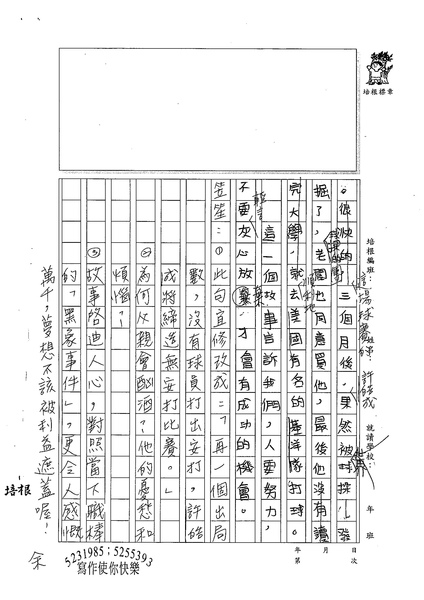 培根標章
培根編班：
就讀學校：
年　班
年　月　日
第　次
。很快的三個月後，果然被球探發
掘了，老闆也同意買他，最後他沒有讀
完大學，就去美國有名的海洋隊打球。
這一個故事告訴我們，人要努力，
不要灰心放棄，才會有成功的機會。
笠笙：①此句宜修改成：「再一個出局
數，沒有球員打出安打，許皓
成將締造無安打比賽。」
②為何父親會酗酒？他的憂愁和
煩惱？
③故事啓迪人心，對照當下職棒
的「黑象事件」，更令人感慨
萬千，夢想不該被利益遮蓋喔！
余
培根
5231985；5255393
寫作使你快樂